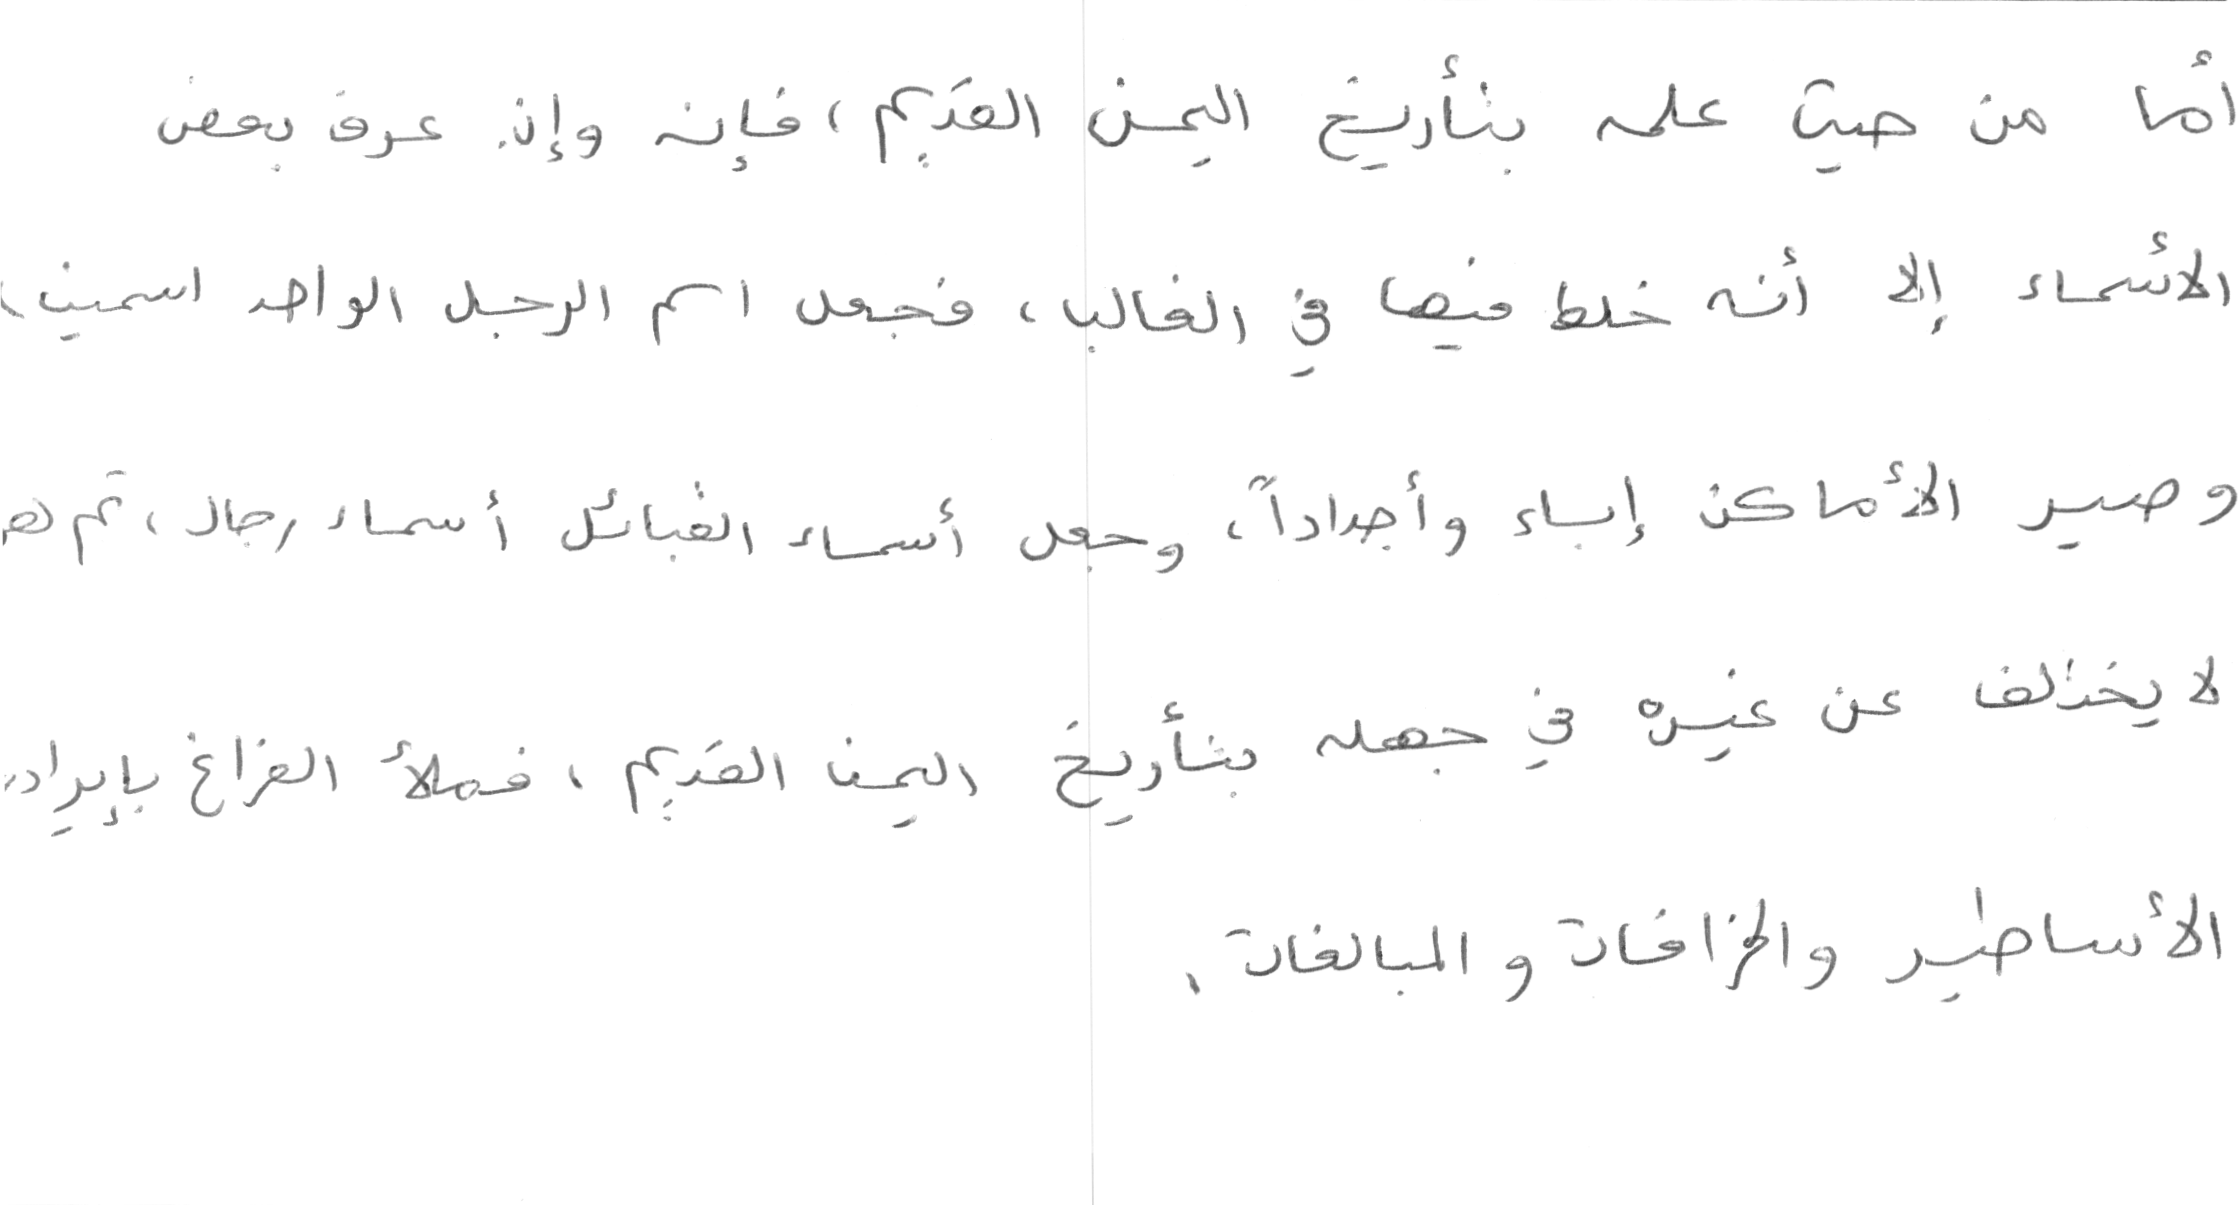 أما من حيث علمه بتأريخ اليمن القديم، فإنه وإن عرف بعض
الأسماء إلا أنه خلط فيها في الغالب، فجعل اسم الرجل الواحد اسمين،
وصير الأماكن إباء وأجداداً، وجعل أسماء القبائل أسماء رجال، ثم هو
لا يختلف عن غيره في جهله بتأريخ اليمن القديم، فملأ الفراغ بإيراد
الأساطير والخرافات والمبالغات.